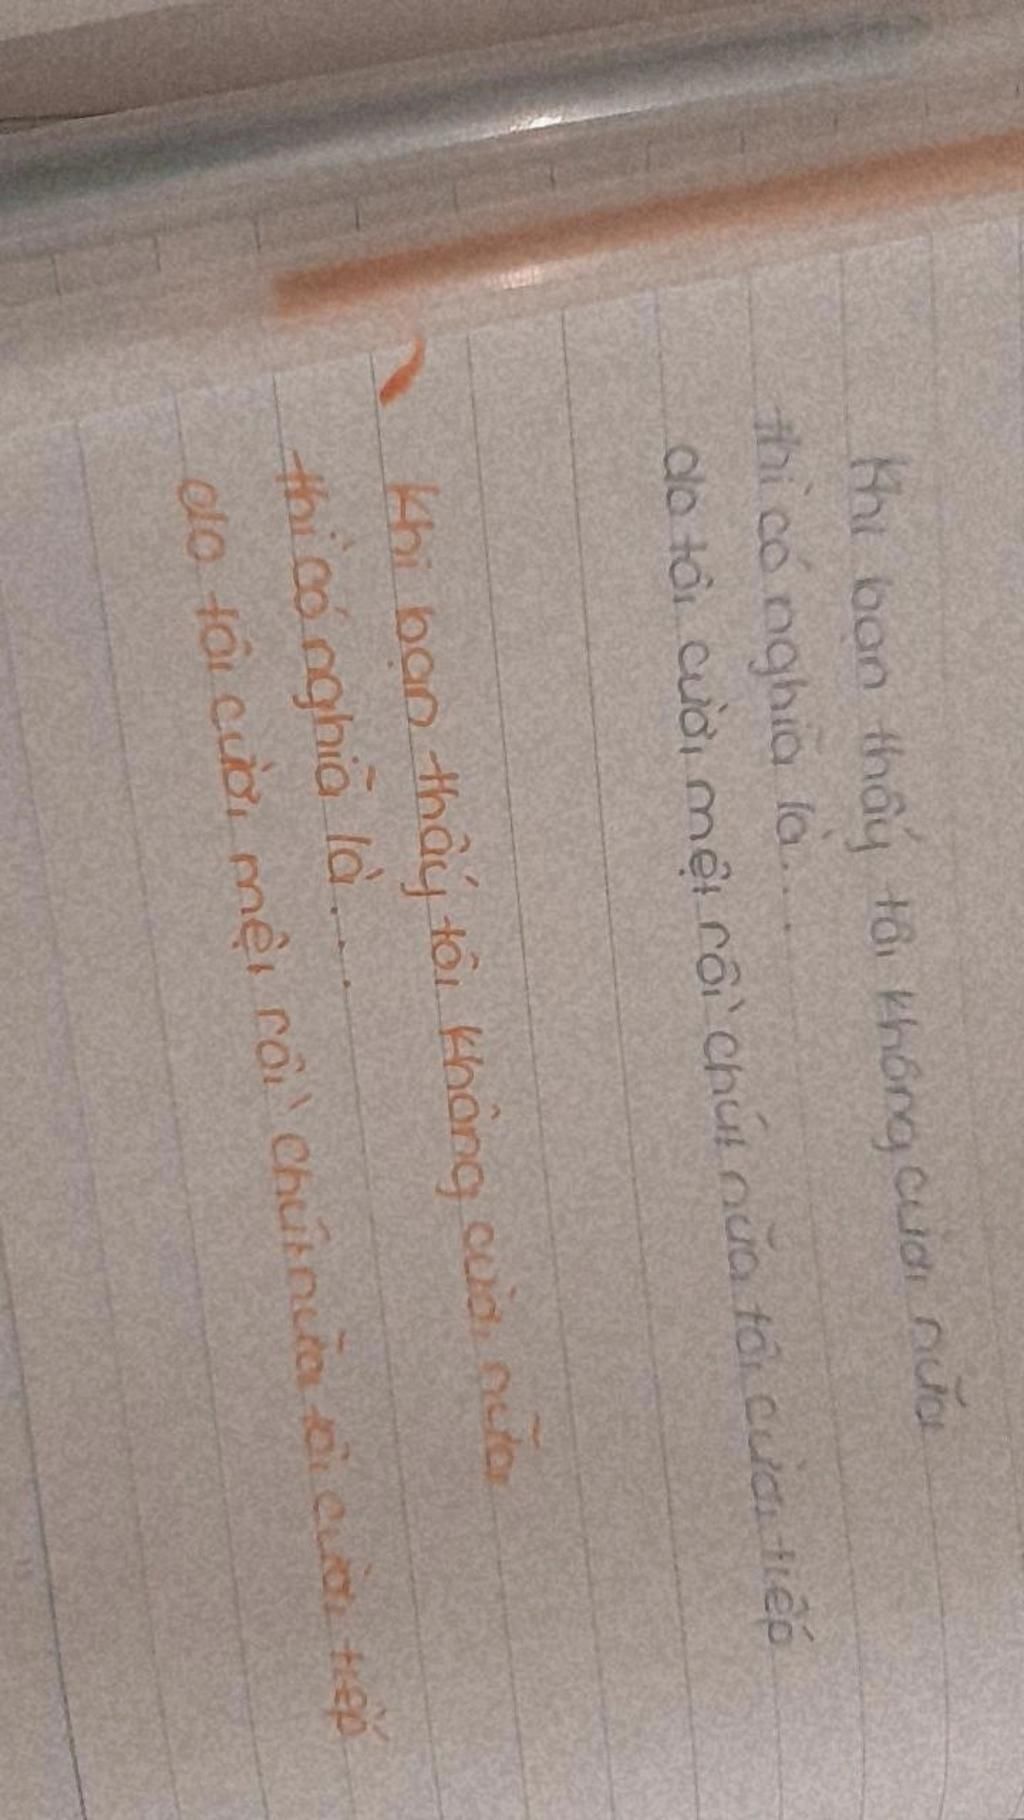 Khi bạn thấy tôi không cười nữa
thì có nghĩa là....
do tôi cười mệt rồi chút nữa tôi cười tiếp
Khi bạn thấy tôi không cười nữa
thì có nghĩa là....
do tôi cười mệt rồi chút nữa tôi cười tiếp